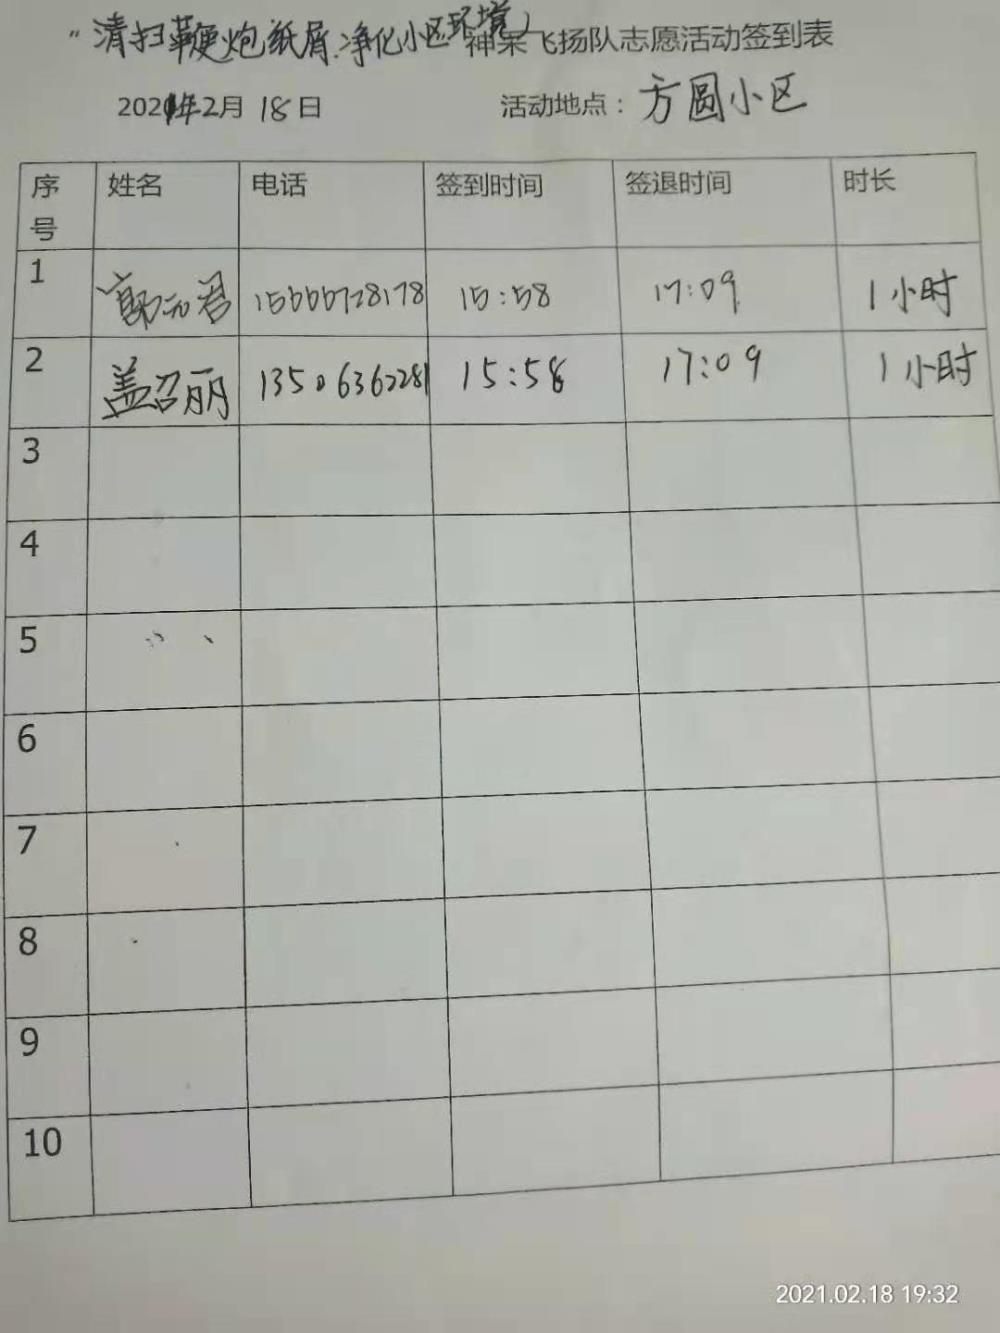 "清扫鞭炮纸屑、净化小区环境"神采飞扬队志愿活动签到表
2021年2月18日 活动地点：方圆小区
序号 姓名 电话 签到时间 签退时间 时长
1 15:58 17:09 1小时
2 盖召丽 13506362281 15:58 17:09 1小时
3
4
5
6
7
8
9
10
2021.02.18 19:32